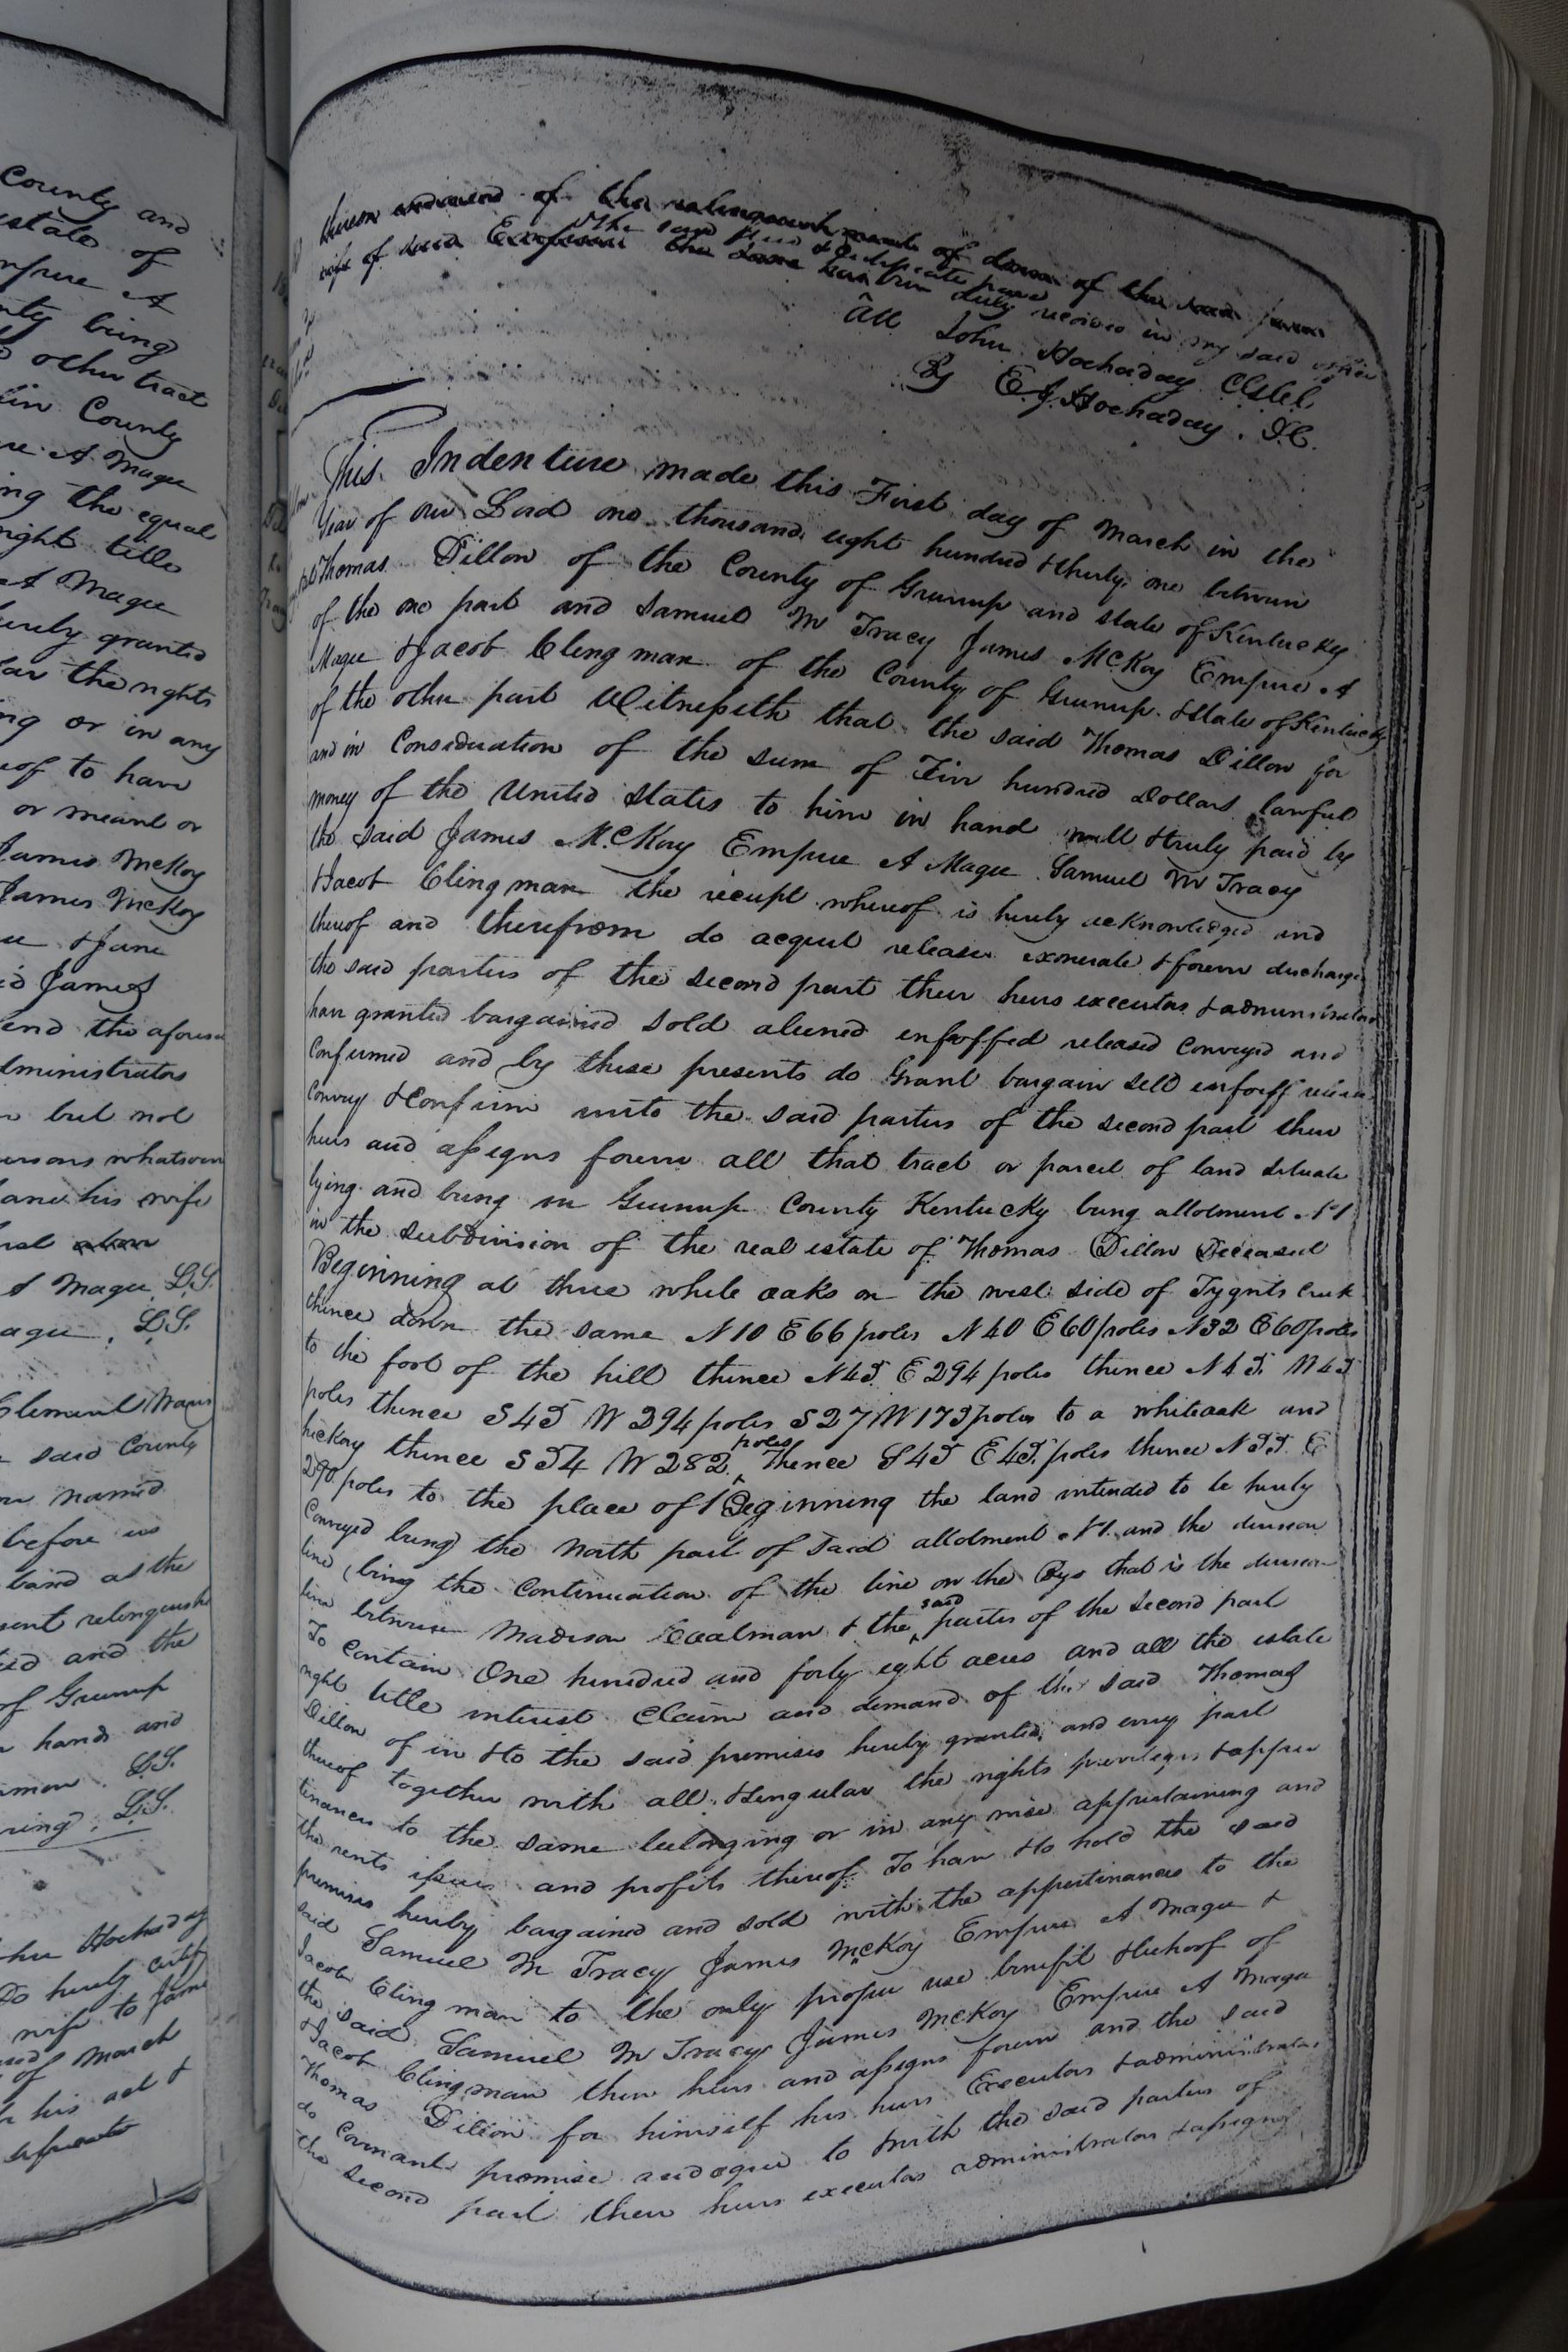 County and
estate of
Empire A
nty being
other tract
in County
A Magee
ing the equal
right title
A Magee
hereby granted
the rights
ng or in any
eof to have
or meant or
James McKoy
James McKoy
& Jane
James
end the aforesd
dministrators
but not
ersons whatsoever
Jane his wife
A Magee L.S.
agee. L.S.
Clement
said County
named
before us
hand as the
sent relinquish
and the
of Greenup
hands and
L.S.
L.S.
Hochaday
Do hereby certify
wife to
of March
his act &
of the relinquishment of dower of the
wife of said
The said deed & Certificate have
been duly received in my said office
Att John Hochaday Clk
By E.J. Hochaday. D.C.
This Indenture made this First day of March in the
Year of our Lord one thousand eight hundred & thirty one between
Thomas Dillon of the County of Greenup and state of Kentucky
of the one part and Samuel M Tracy James McKoy Empire A
Magee & Jacob Clingman of the County of Greenup & state of Kentucky
of the other part Witnesseth that the said Thomas Dillon for
and in Consideration of the sum of Five hundred Dollars lawful
money of the United States to him in hand well & truly paid by
the said James McKoy Empire A Magee Samuel M Tracy
& Jacob Clingman the receipt whereof is hereby acknowledged and
thereof and therefrom do acquit release exonerate & forever discharge
the said parties of the second part their heirs executors & administrators
have granted bargained sold aliened enfoffed released Conveyed and
Confirmed and by these presents do Grant bargain sell enfoeff
Convey & Confirm unto the said parties of the second part their
heirs and assigns forever all that tract or parcel of land situate
lying and being in Greenup County Kentucky being allotment N1
in the subdivision of the real estate of Thomas Dillon Deceased
Beginning at three white oaks on the west side of Tygerts Creek
thence down the same N10 E66 poles N40 E60 poles N32 E60 poles
to the foot of the hill thence N45 E294 poles thence N45 W45
poles thence S45 W294 poles S27 W173 poles to a whiteoak and
hickory thence S54 W282 poles Thence S45 E45 poles thence N55 E
290 poles to the place of Beginning the land intended to be hereby
Conveyed being the North part of said allotment N1 and the division
line being the Continuation of the line on the that is the division
line between Madison & the said parties of the second part
To Contain One hundred and forty eight acres and all the estate
right title interest Claim and demand of the said Thomas
Dillon of in & to the said premises hereby granted and every part
thereof together with all & singular the rights privileges & appur
tinances to the same belonging or in any wise appurtaining and
the rents issues and profits thereof To have & to hold the said
premises hereby bargained and sold with the appurtinances to the
said Samuel M Tracy James McKoy Empire A Magee &
Jacob Clingman to the only proper use benefit & behoof of
the said Samuel M Tracy James McKoy Empire A Magee
& Jacob Clingman their heirs and assigns forever and the said
Thomas Dillon for himself his heirs Executors & administrators
do Covenant promise and agree to & with the said parties of
the second part their heirs executors administrators & assigns